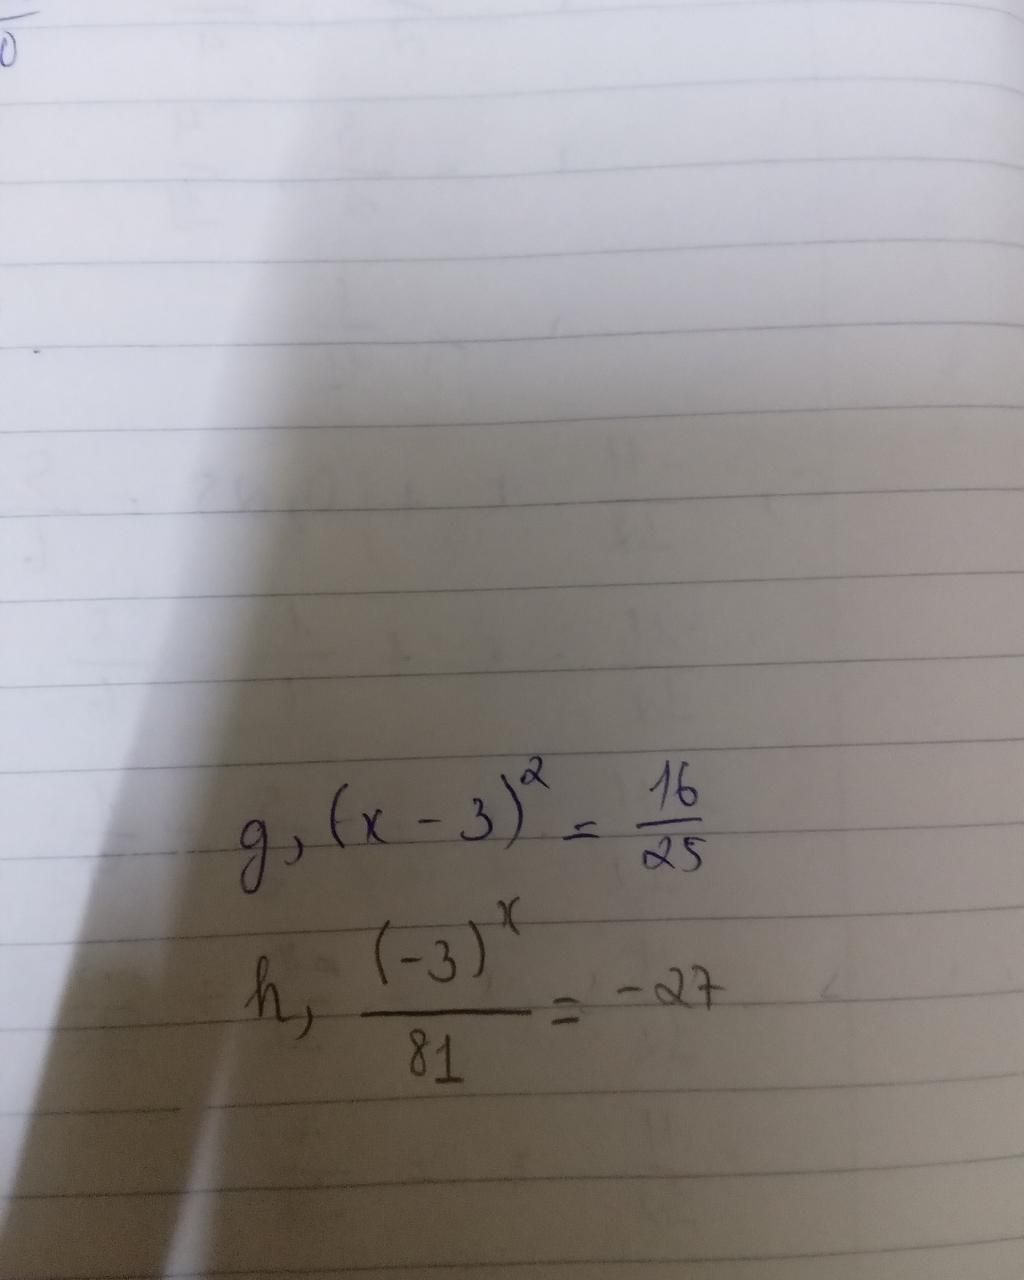 0
g, (x - 3)² = 16/25
h, (-3)ˣ/81 = -27